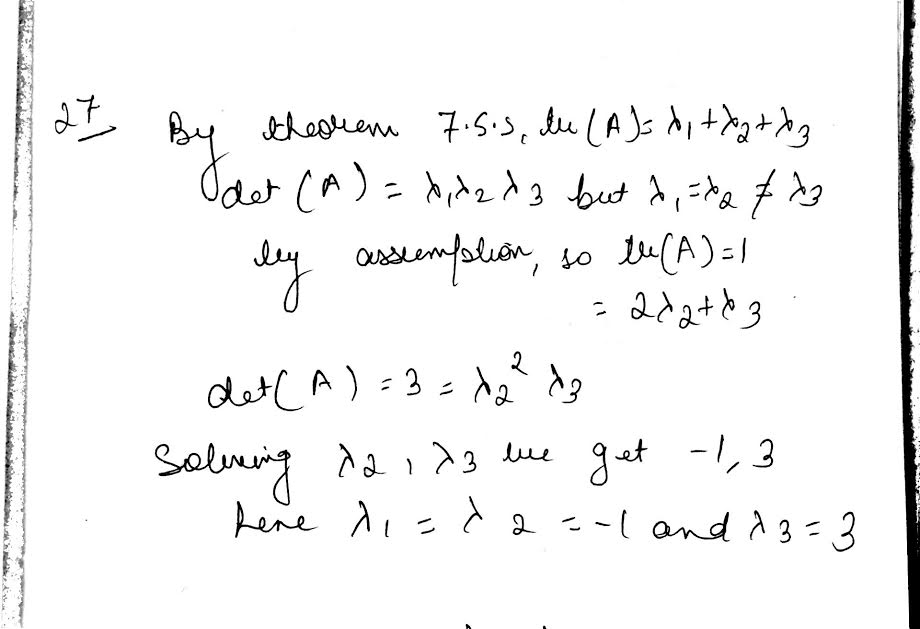 27 By theorem 7.5.5, tr(A) = λ₁+λ₂+λ₃
det(A) = λ₁λ₂λ₃ but λ₁=λ₂ ≠ λ₃
by assumption, so tr(A)=1
= 2λ₂+λ₃
det(A) = 3 = λ₂² λ₃
Solving λ₂, λ₃ we get -1, 3
here λ₁ = λ₂ = -1 and λ₃ = 3